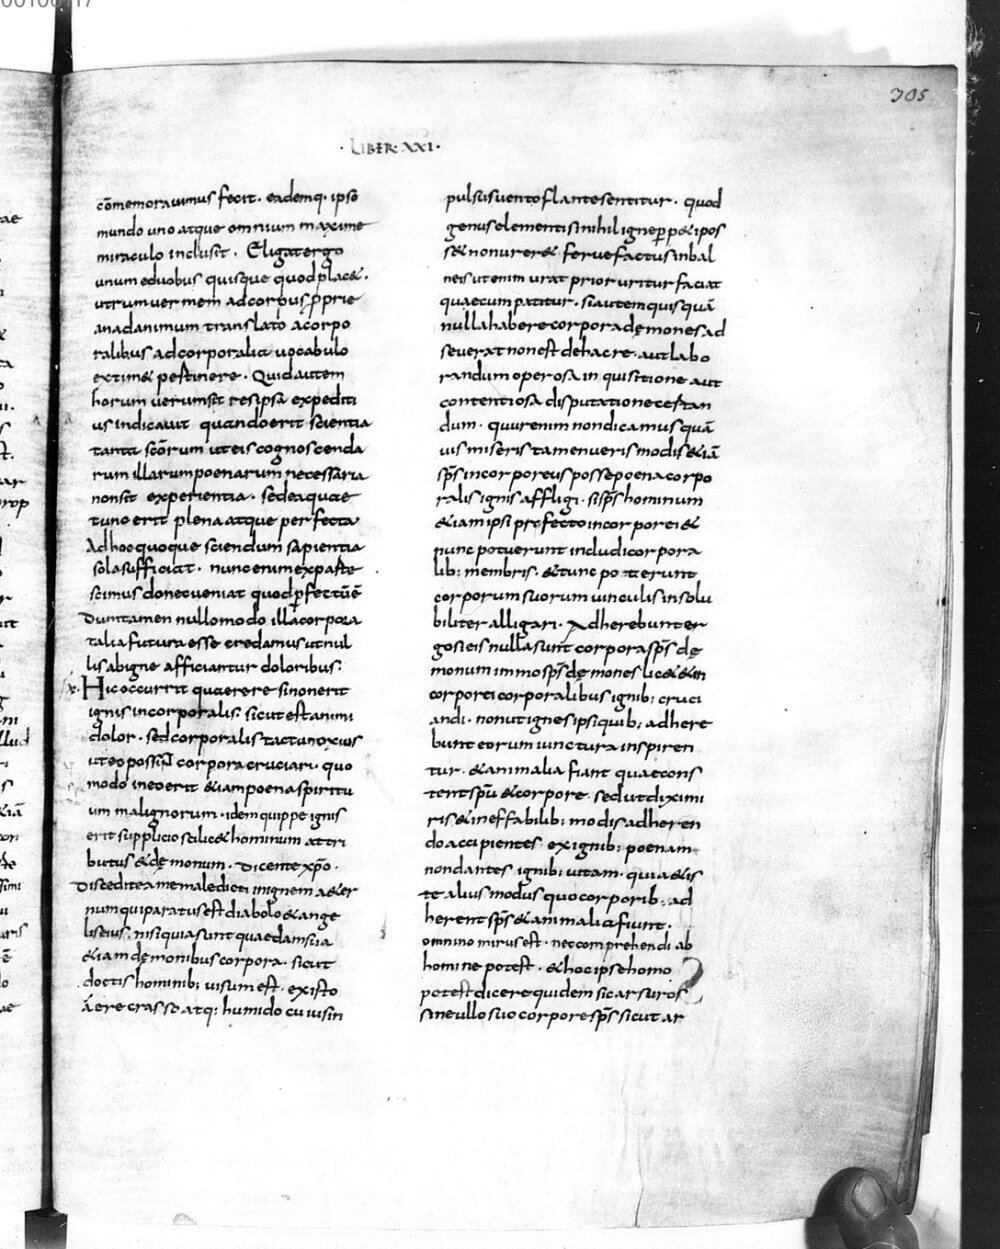 305
· LIBER · XXI ·
cōmemoravimus fecit. eademq. ipso
mundo uno atque omnium maxime
miraculo inclusit. Eligat ergo
unum eduobus quisque quod plac&.
utrum vermem ad corpus p̄prie
an ad animum translato a corpo
ralibus ad corporalia vocabulo
extim& pertinere. Quid autem
horum verum sit res ipsa expediti
us indicavit quando erit scientia
tanta scōrum ut eis cognoscenda
rum illarum poenarum necessaria
non sit experientia. sed ea quae
tunc erit plena atque perfecta
Ad hoc quoque sciendum sapientia
sola sufficiat. nunc enim ex parte
scimus donec veniat quod pfectū ē
Dum tamen nullo modo illa corpora
talia futura esse credamus ut nul
lis ab igne afficiantur doloribus.
x. Hic occurrit quaerere si non erit
ignis incorporalis. sicut est animi
dolor. sed corporalis tactu noxius
ut eo possint corpora cruciari. quo
modo in eo erit &iam poena spiritu
um malignorum. idem quippe ignis
erit supplicio scilic& hominum attri
butus & dęmonum. Dicente xp̄o.
Discedite a me maledicti in ignem a&er
num qui paratus est diabolo & ange
lis eius. nisi quia sunt quaedam sua
&iam dęmonibus corpora. sicut
doctis hominib; visum est. ex isto
aere crasso atq; humido cuius in
pulsus vento flante sentitur. quod
genus elementi si nihil igne pp&i pos
s& non urer& fervefactus in bal
neis ut enim urat prior uritur faciat
quae cum patitur. si autem quisquā
nulla habere corpora dęmones ad
severat non est de hac re. aut labo
randum operosa inquisitione aut
contentiosa disputatione certan
dum. qur enim non dicamus quā
vis miris tamen veris modis &iā
sp̄s incorporeus posse poena corpo
ralis ignis affligi. si sp̄s hominum
&iam ipsi profecto incorporei &
nunc potuerunt includi corpora
lib; membris. & tunc poterunt
corporum suorum vinculis insolu
biliter alligari. Adherebunt er
go si eis nulla sunt corpora sp̄s dę
monum immo sp̄s dęmones lic& in
corporei corporalibus ignib; cruci
andi. non ut ignes ipsi quib; adhere
bunt eorum iunctura inspiren
tur. & animalia fiant quae cons
tent sp̄u & corpore. sed ut dixi mi
ris & ineffabilib; modis adheren
do accipientes ex ignib; poenam
non dantes ignib; vitam. quia & is
te alius modus quo corporib; ad
herent sp̄s & animalia fiunt.
omnino mirus est. nec comprehendi ab
homine potest. & hoc ipse homo
potest dicere quidem sic arsuros
sine ullo suo corpore sp̄s sicut ar